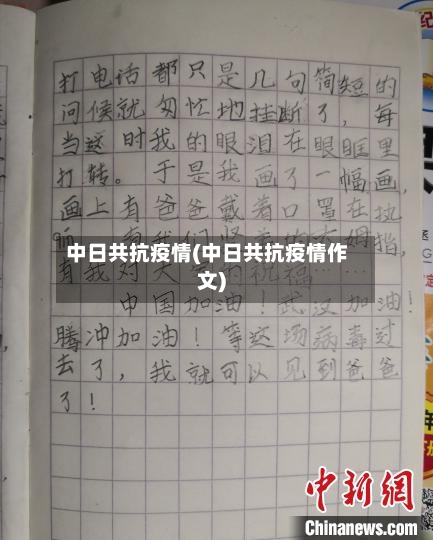 打电话都只是几句简短的
问候就匆忙地挂断了，每
当这时我的眼泪在眼眶里
打转。于是我画了一幅画，
画上有爸爸戴着口罩在执
中日共抗疫情(中日共抗疫情作
文)
有我对大
祝福
中国加油！武汉加油！
腾冲加油！等这场病毒过
去了，我就可以见到爸爸
了！
中新网
Chinanews.com